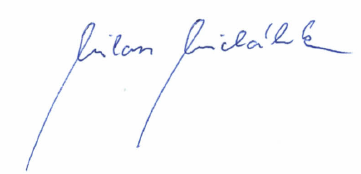 Milan Michálek